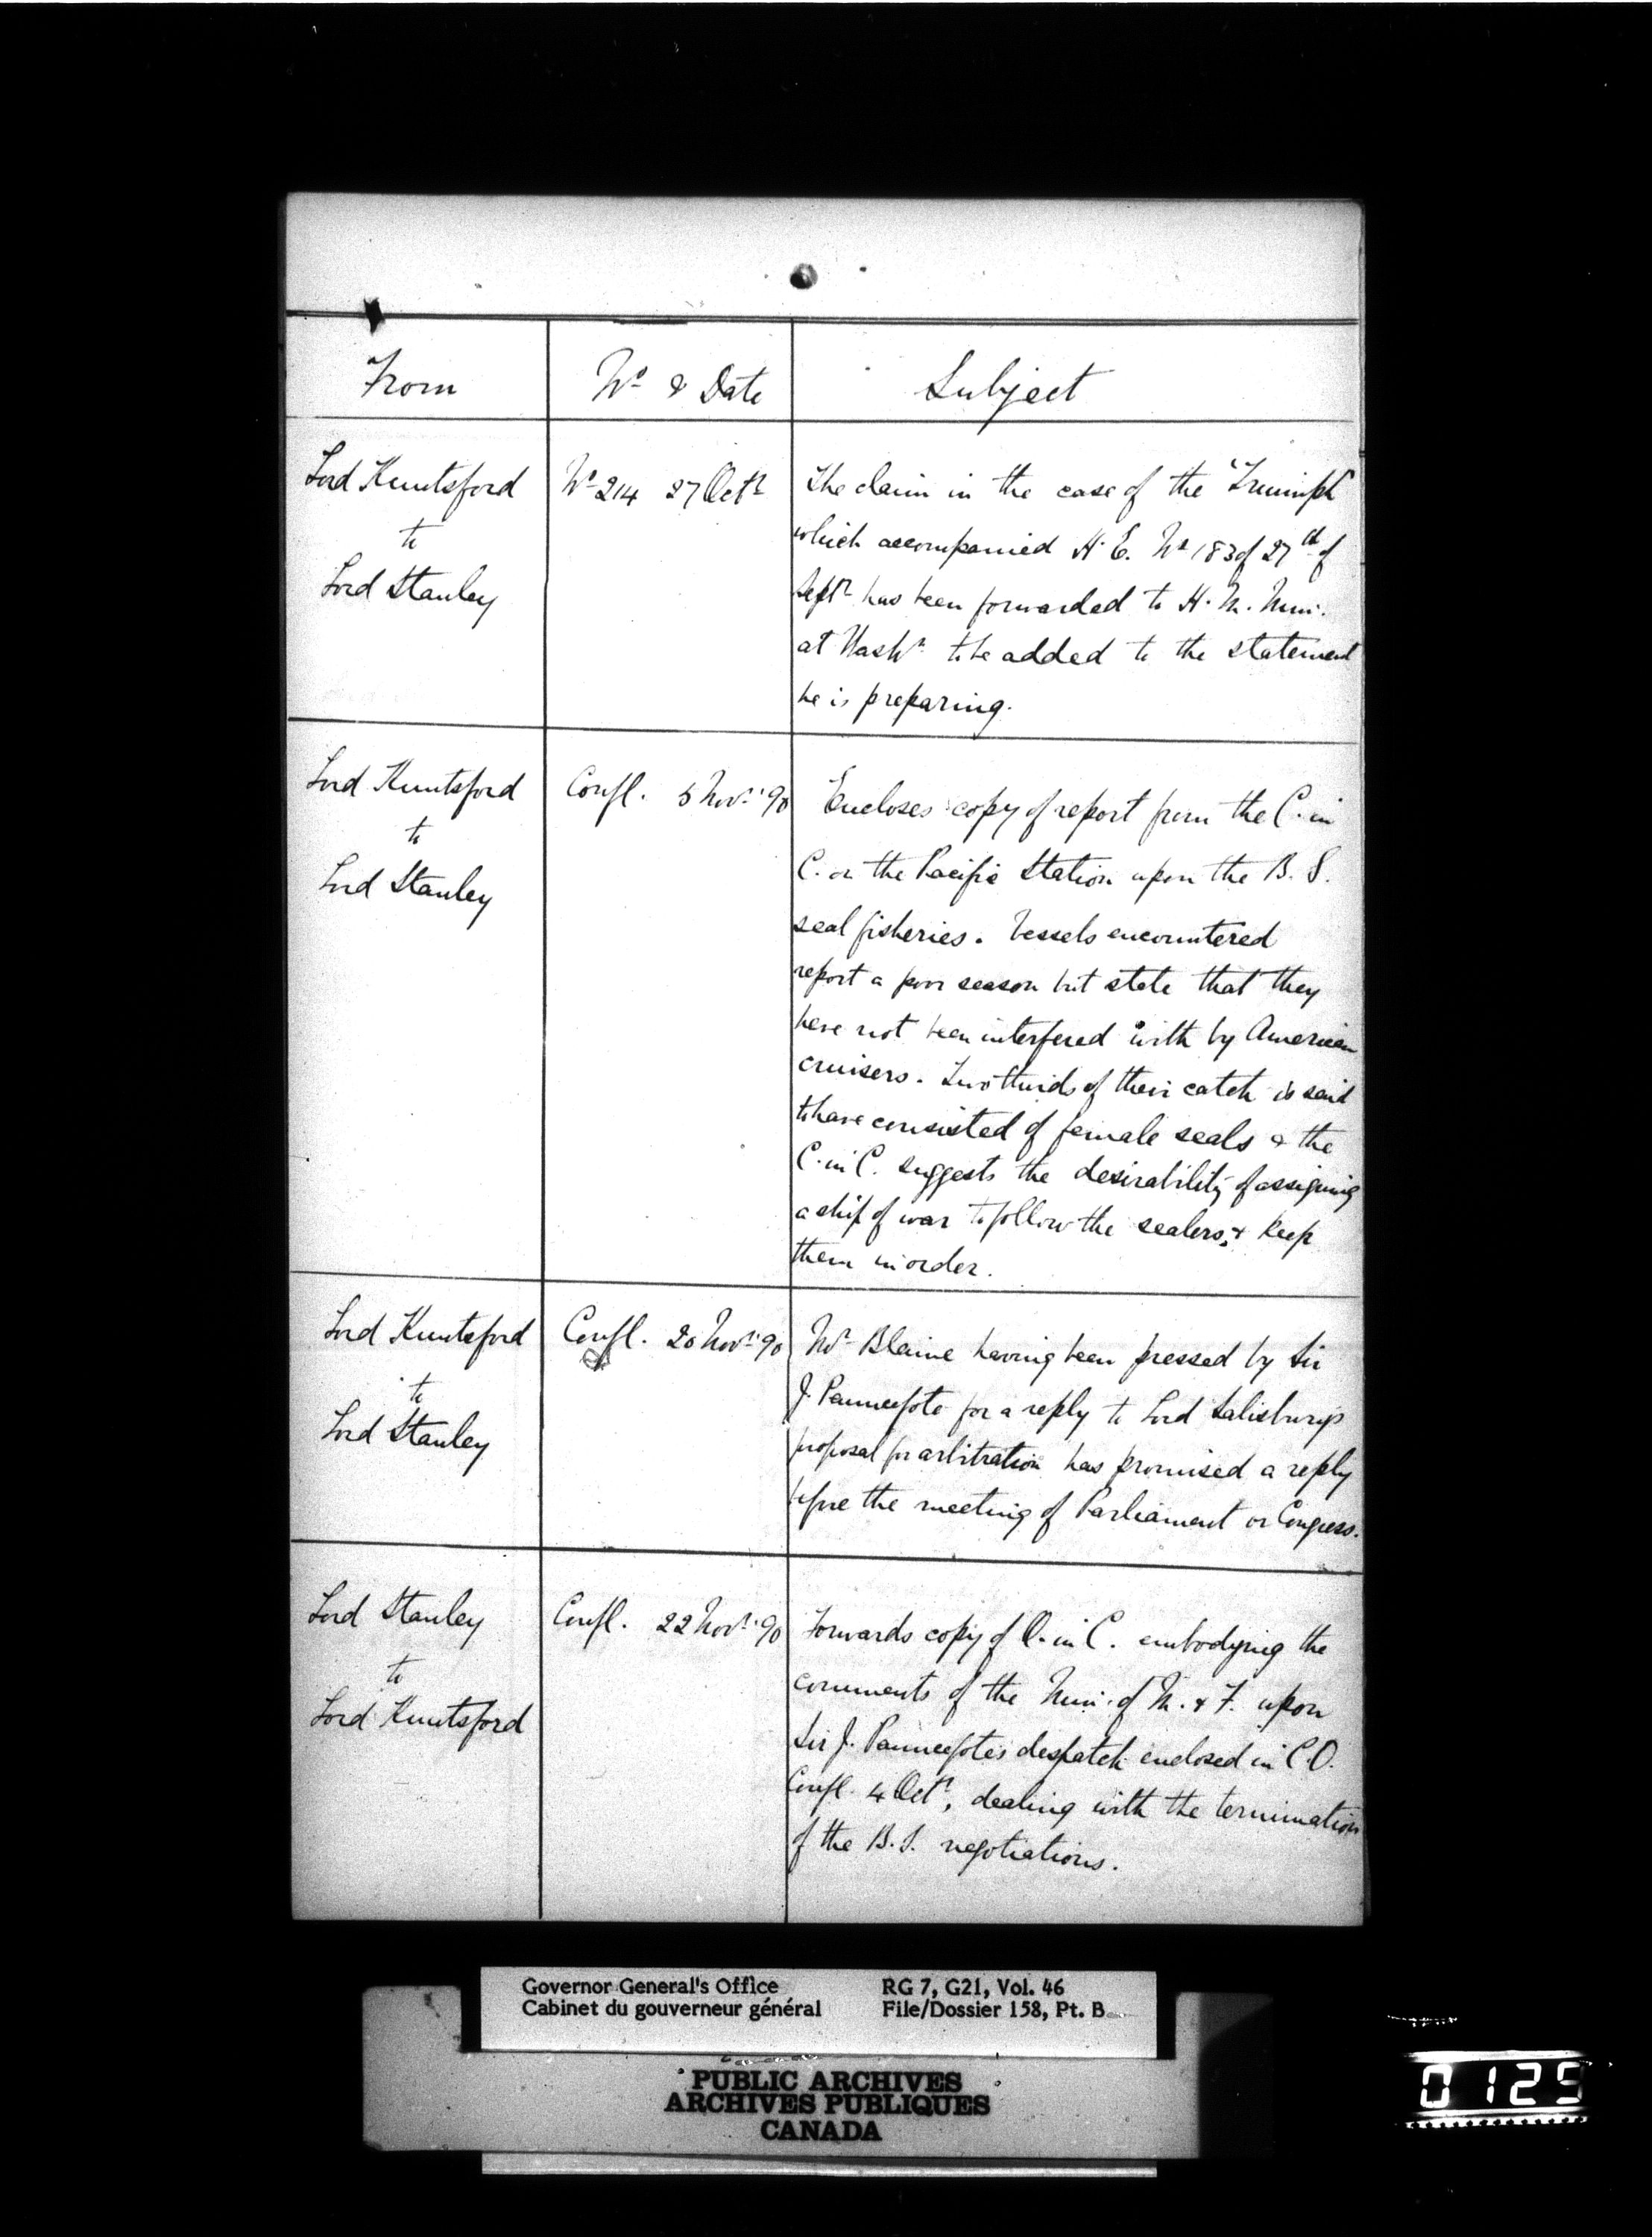 From
No & Date
Subject
Lord Knutsford
to
Lord Stanley
No 214 27 Octr
The claim in the case of the "Triumph"
which accompanied H. E. No 183 of 27th of
Septr has been forwarded to H. M. Min.
at Washn to be added to the statement
he is preparing.
Lord Knutsford
to
Lord Stanley
Confl. 5 Novr '90
Encloses copy of report from the C. in
C. on the Pacific Station upon the B. S.
seal fisheries. Vessels encountered
report a poor season but state that they
have not been interfered with by American
cruisers. Two thirds of their catch is said
to have consisted of female seals & the
C. in C. suggests the desirability of assigning
a ship of war to follow the sealers, & keep
them in order.
Lord Knutsford
to
Lord Stanley
Confl. 20 Novr '90
Mr Blaine having been pressed by Sir
J. Pauncefote for a reply to Lord Salisbury's
proposal for arbitration has promised a reply
before the meeting of Parliament or Congress.
Lord Stanley
to
Lord Knutsford
Confl. 22 Novr '90
Forwards copy of O. in C. embodying the
comments of the Min. of M. & F. upon
Sir J. Pauncefote's despatch enclosed in C.O.
Confl. 4 Octr, dealing with the termination
of the B.S. negotiations.
Governor General's Office
Cabinet du gouverneur général
RG 7, G21, Vol. 46
File/Dossier 158, Pt. B
PUBLIC ARCHIVES
ARCHIVES PUBLIQUES
CANADA
0125